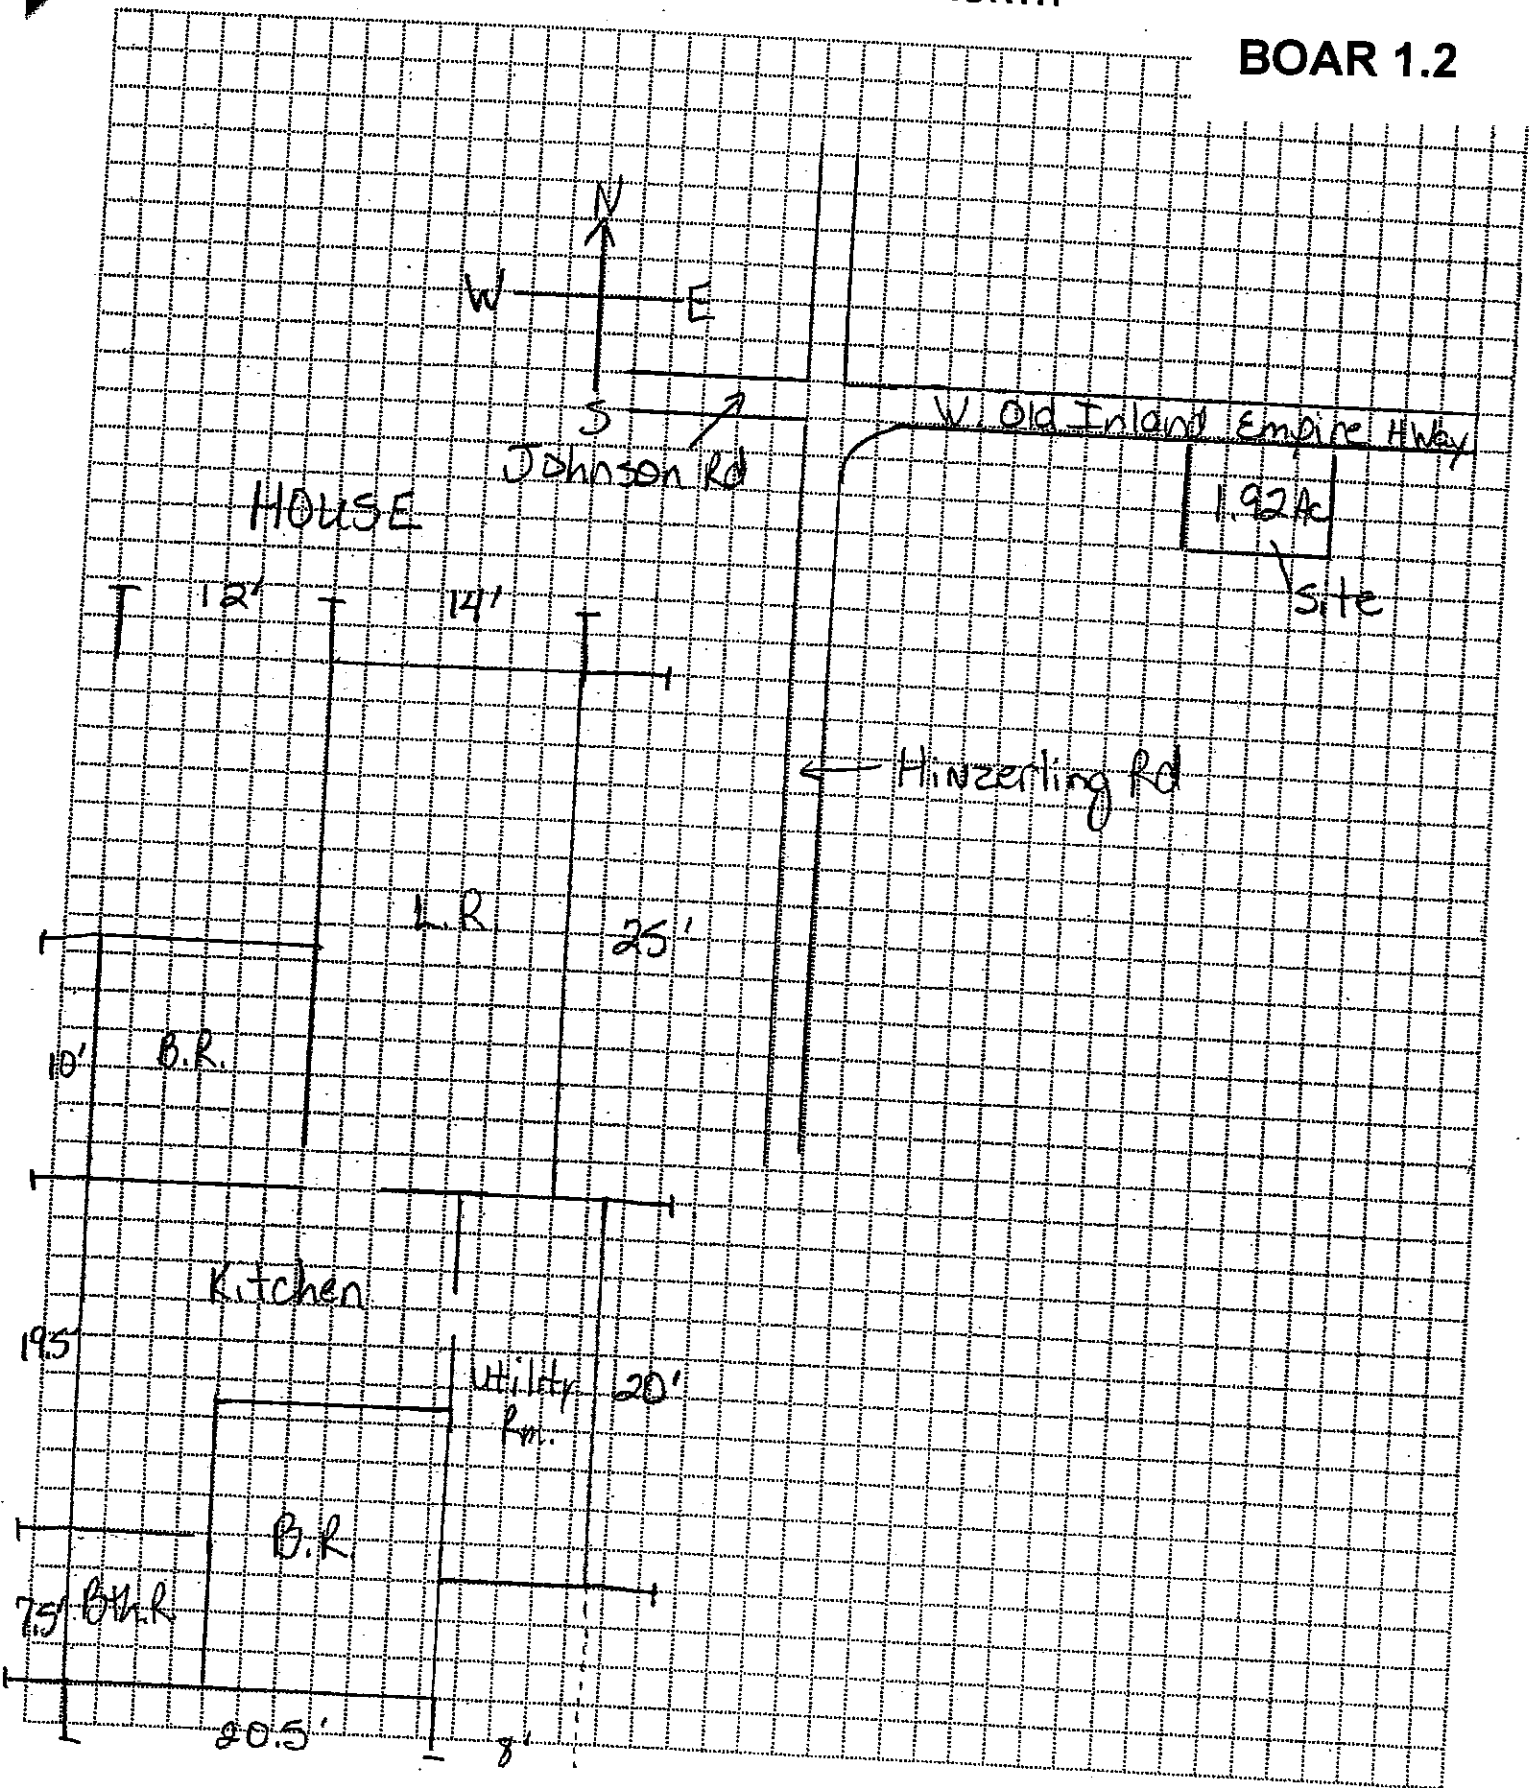 BOAR 1.2
N
W E
S
Johnson Rd
W. Old Inland Empire HWay
1.92 Ac
Site
HOUSE
12'
14'
Hinzerling Rd
L.R.
25'
10'
B.R.
Kitchen
19.5'
Utility
Rm.
20'
B.R.
7.5'
Bth.R
20.5'
8'